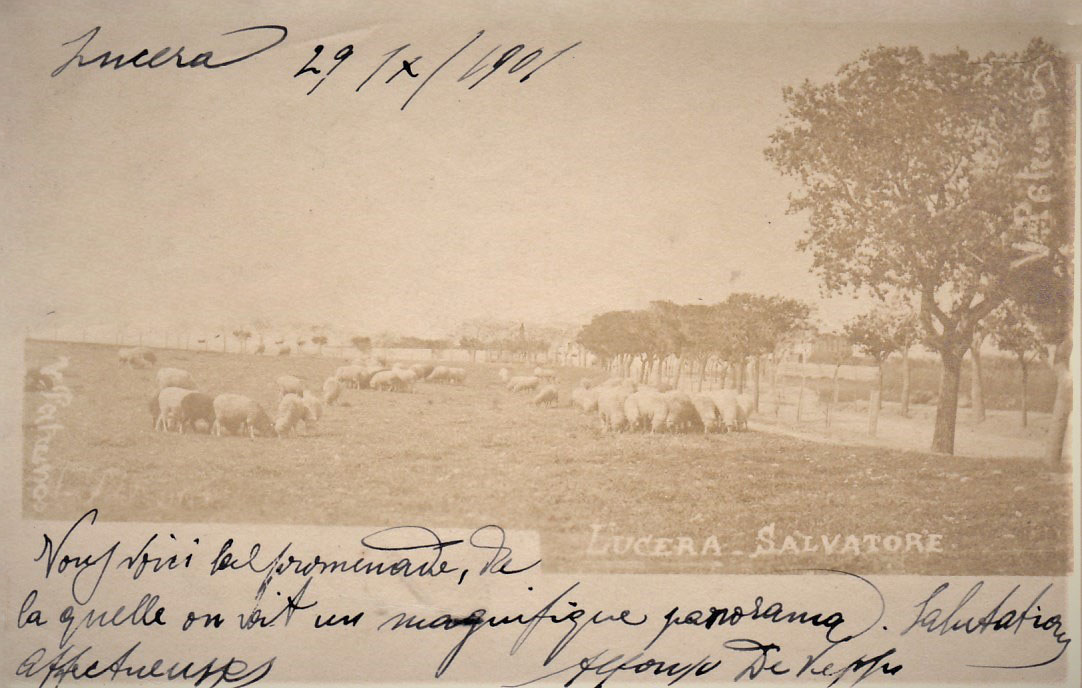 Lucera 29/IX/1901
LUCERA - SALVATORE
Vous voici bel promenade, da
la quelle on voit un magnifique panorama. Salutations
affectueuses Alfonso De